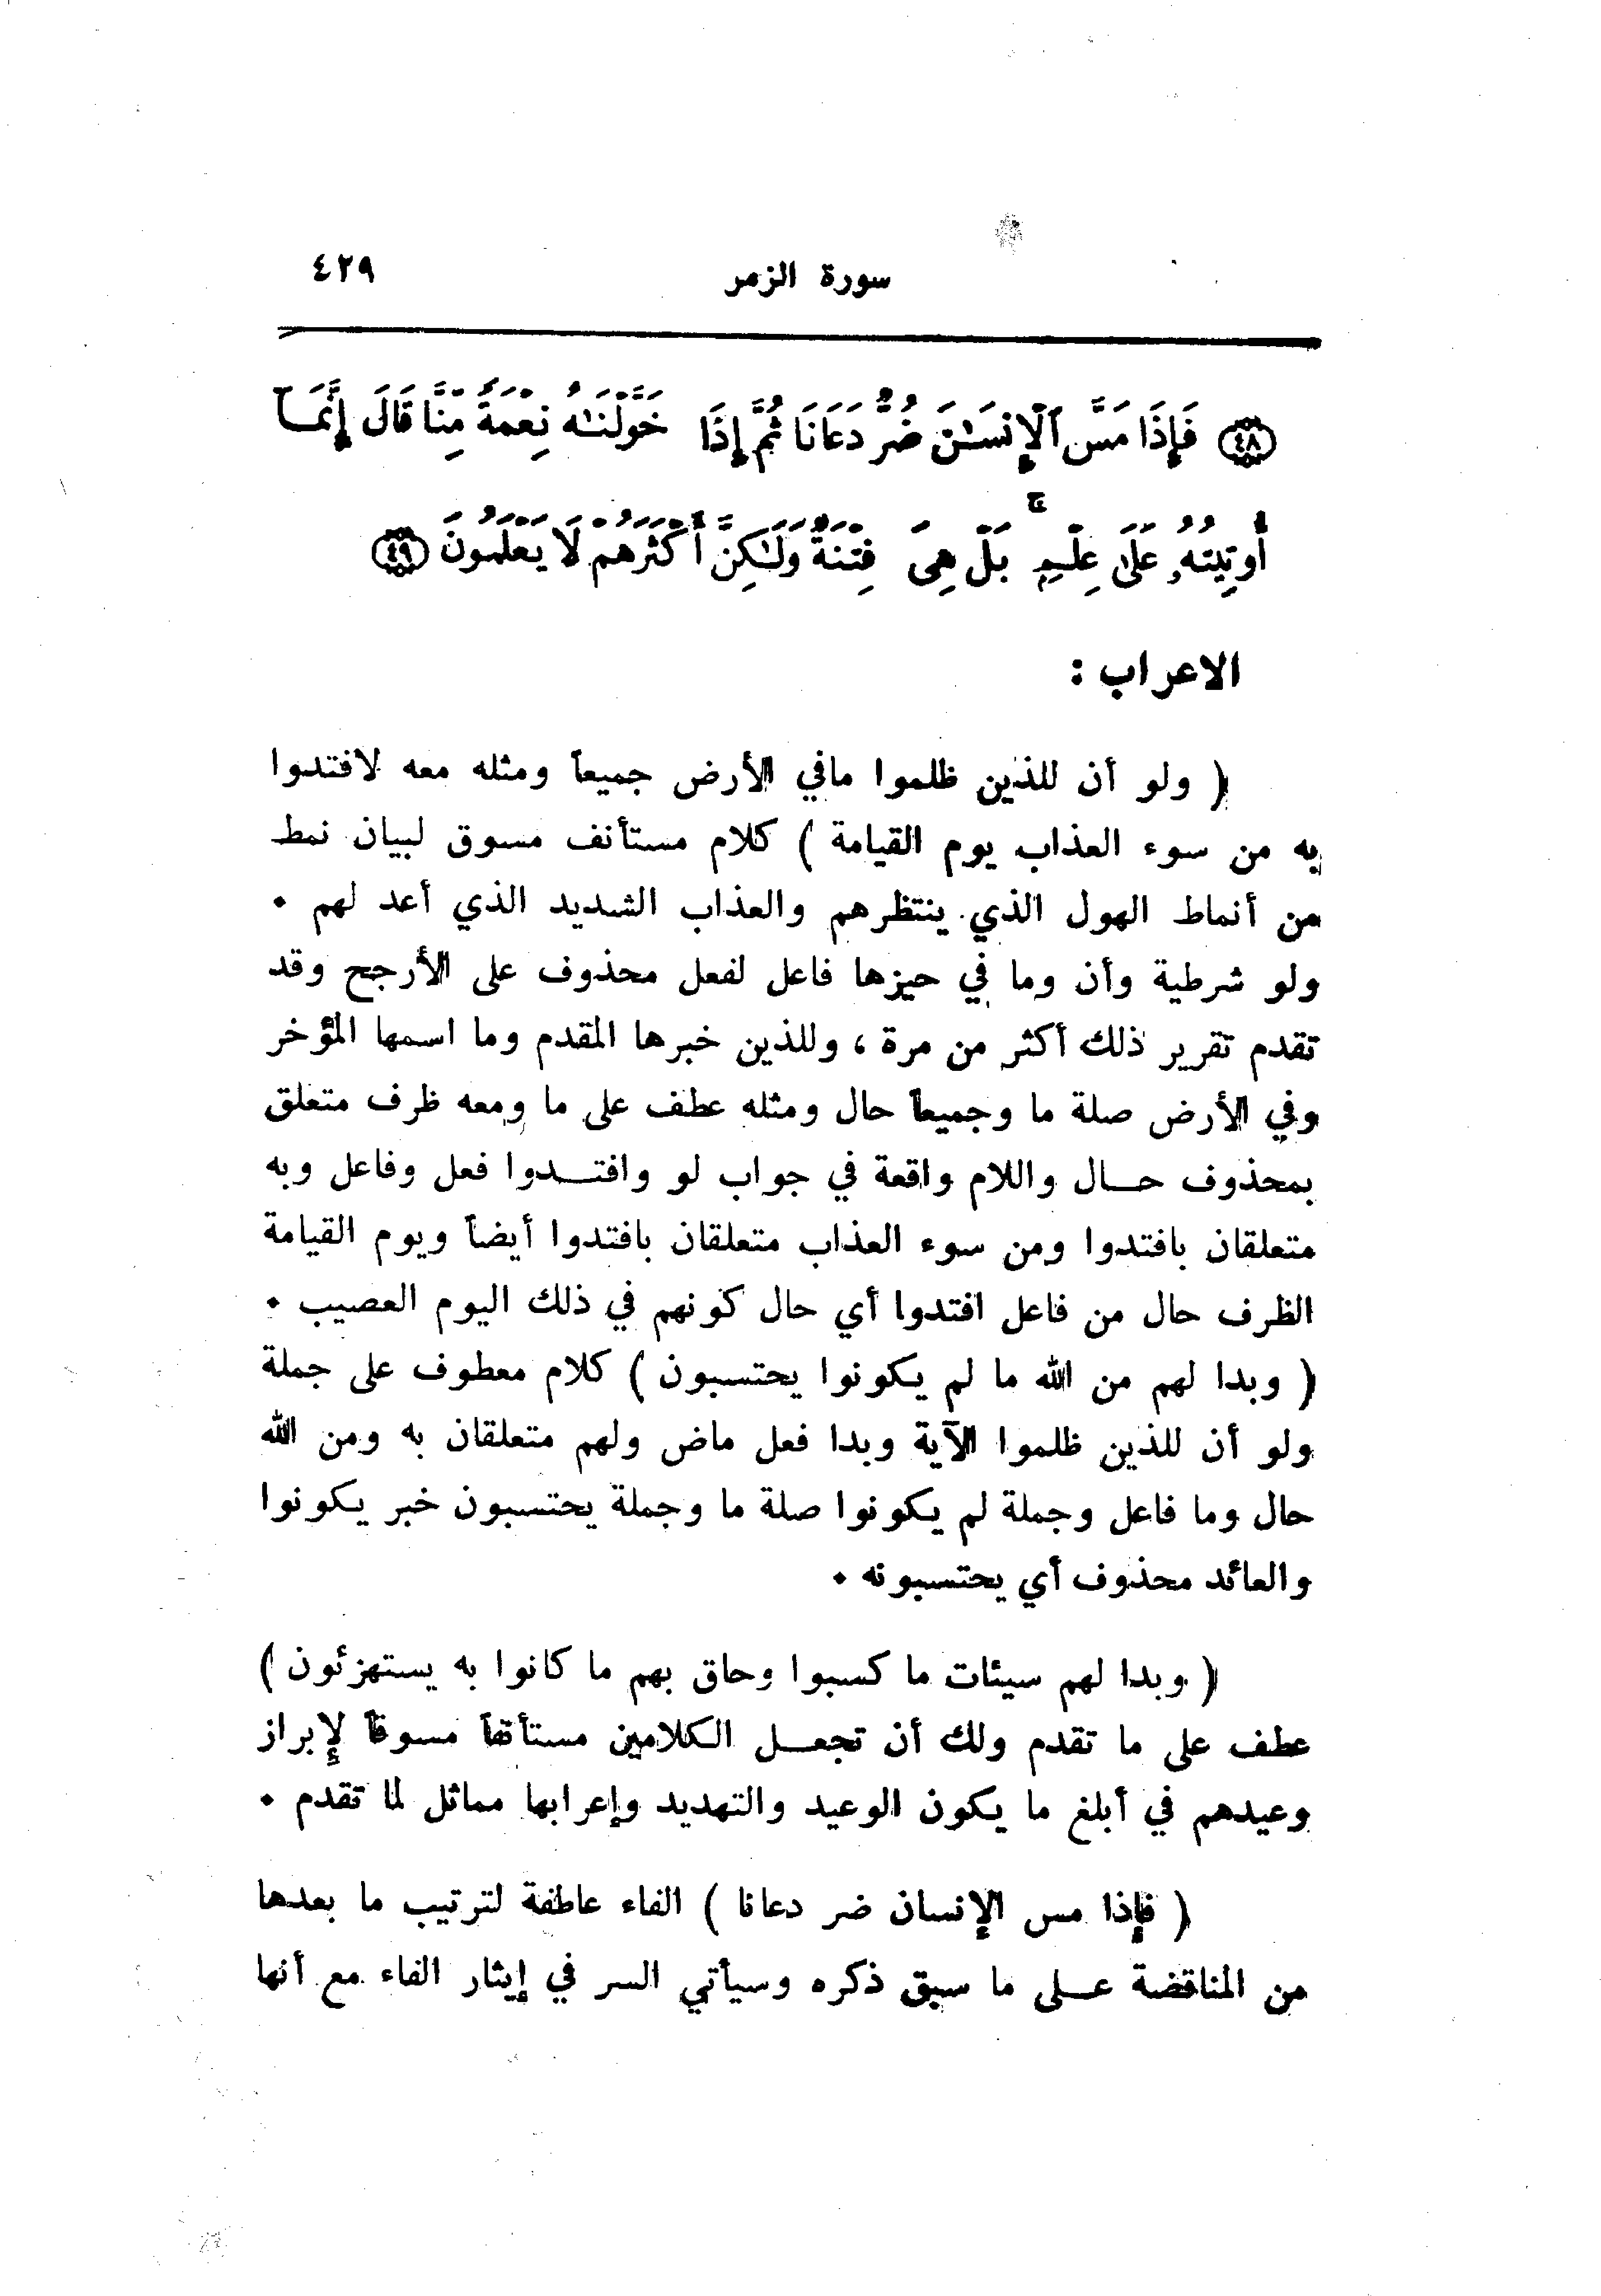 سورة الزمر ٤٢٩
﴿٤٨﴾ فَإِذَا مَسَّ ٱلْإِنسَـٰنَ ضُرٌّ دَعَانَا ثُمَّ إِذَا خَوَّلْنَـٰهُ نِعْمَةً مِّنَّا قَالَ إِنَّمَآ
أُوتِيتُهُۥ عَلَىٰ عِلْمٍۭ ۚ بَلْ هِىَ فِتْنَةٌ وَلَـٰكِنَّ أَكْثَرَهُمْ لَا يَعْلَمُونَ ﴿٤٩﴾
الاعراب :
( ولو أن للذين ظلموا مافي الأرض جميعاً ومثله معه لافتدوا
به من سوء العذاب يوم القيامة ) كلام مستأنف مسوق لبيان نمط
من أنماط الهول الذي ينتظرهم والعذاب الشديد الذي أعد لهم ٠
ولو شرطية وأن وما في حيزها فاعل لفعل محذوف على الأرجح وقد
تقدم تقرير ذلك أكثر من مرة ، وللذين خبرها المقدم وما اسمها المؤخر
وفي الأرض صلة ما وجميعاً حال ومثله عطف على ما ومعه ظرف متعلق
بمحذوف حــال واللام واقعة في جواب لو وافتــدوا فعل وفاعل وبه
متعلقان بافتدوا ومن سوء العذاب متعلقان بافتدوا أيضاً ويوم القيامة
الظرف حال من فاعل افتدوا أي حال كونهم في ذلك اليوم العصيب ٠
( وبدا لهم من الله ما لم يكونوا يحتسبون ) كلام معطوف على جملة
ولو أن للذين ظلموا الآية وبدا فعل ماض ولهم متعلقان به ومن الله
حال وما فاعل وجملة لم يكونوا صلة ما وجملة يحتسبون خبر يكونوا
والعائد محذوف أي يحتسبونه ٠
( وبدا لهم سيئات ما كسبوا وحاق بهم ما كانوا به يستهزئون )
عطف على ما تقدم ولك أن تجعــل الكلامين مستأنفاً مسوقاً لإبراز
وعيدهم في أبلغ ما يكون الوعيد والتهديد وإعرابها مماثل لما تقدم ٠
( فإذا مس الإنسان ضر دعانا ) الفاء عاطفة لترتيب ما بعدها
من المناقضة عــلى ما سبق ذكره وسيأتي السر في إيثار الفاء مع أنها